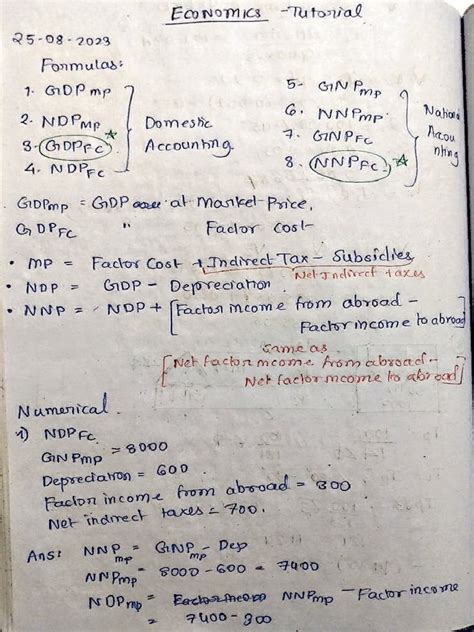 ECONOMICS - Tutorial
25-08-2023
Formulas:
1. GDP MP
2. NDP MP
3. GDP FC
4. NDP FC
Domestic
Accounting
5- GNP MP
6. NNP MP
7. GNP FC
8. NNP FC
National
Accou
nting
GDP MP = GDP at Market Price,
GDP FC " Factor cost-
• MP = Factor Cost + Indirect Tax - Subsidies
Net Indirect taxes
• NDP = GDP - Depreciation
• NNP = NDP + [Factor income from abroad -
Factor income to abroad]
same as
[Net factor income from abroad -
Net factor income to abroad]
Numerical.
1) NDP FC.
GNP MP = 8000
Depreciation = 600
Factor income from abroad = 300
Net indirect taxes = 700.
Ans: NNP mp = GNP mp - Dep
NNP mp = 8000 - 600 = 7400
NDP mp = NNP mp - Factor income
= 7400 - 300